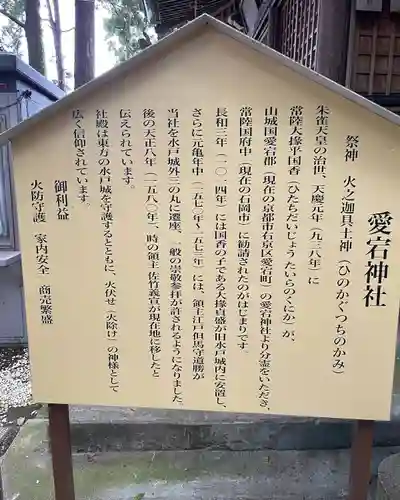 愛宕神社
祭神　火之迦具土神（ひのかぐつちのかみ）
朱雀天皇の治世、天慶元年（九三八年）に
常陸大掾平国香（ひたちだいじょうたいらのくにか）が、
山城国愛宕郡（現在の京都市右京区愛宕町）の愛宕神社より分霊をいただき、
常陸国府中（現在の石岡市）に勧請されたのがはじまりです。
長和三年（一〇一四年）には国香の子である大掾貞盛が旧水戸城内に安置し、
さらに元亀年中（一五七〇年〜一五七三年）には、領主江戸但馬守道勝が
当社を水戸城外三の丸に遷座、一般の崇敬参拝が許されるようになりました。
後の天正八年（一五八〇年）、時の領主佐竹義宣が現在地に移したと
伝えられています。
社殿は東方の水戸城を守護するとともに、火伏せ（火除け）の神様として
広く信仰されています。
御利益
火防守護　家内安全　商売繁盛